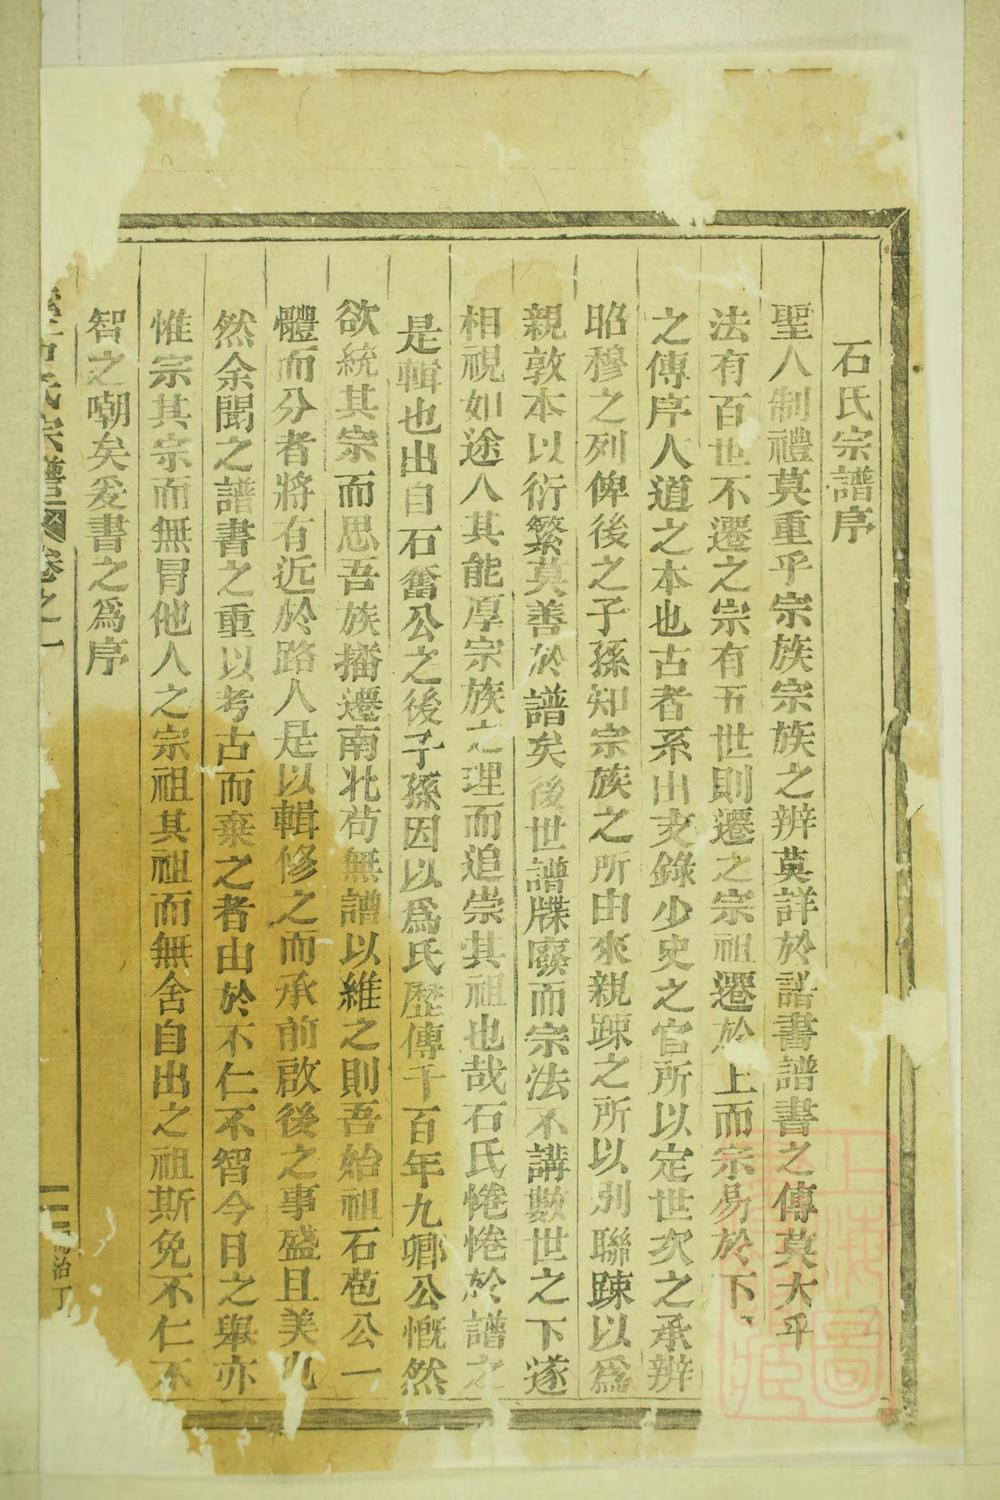 石氏宗譜序
聖人制禮莫重乎宗族宗族之辨莫詳於譜書譜書之傳莫大乎
法有百世不遷之宗有五世則遷之宗祖遷於上而宗易於下
之傳序人道之本也古者系出史錄少史之官所以定世次之承辨
昭穆之列俾後之子孫知宗族之所由來親踈之所以別聯踈以爲
親敦本以衍繁莫善於譜矣後世譜牒廢而宗法不講數世之下遂
相視如途人其能厚宗族之理而追崇其祖也哉石氏惓惓於譜之
是輯也出自石奮公之後子孫因以爲氏歷傳千百年九卿公慨然
欲統其宗而思吾族播遷南北苟無譜以維之則吾始祖石苞公一
體而分者將有近於路人是以輯修之而承前啟後之事盛且美九
然余聞之譜書之重以考古而棄之者由於不仁不智今日之舉亦
惟宗其宗而無冒他人之宗祖其祖而無舍自出之祖斯免不仁不
智之嘲矣爰書之爲序
氏宗譜 卷之一
治丁